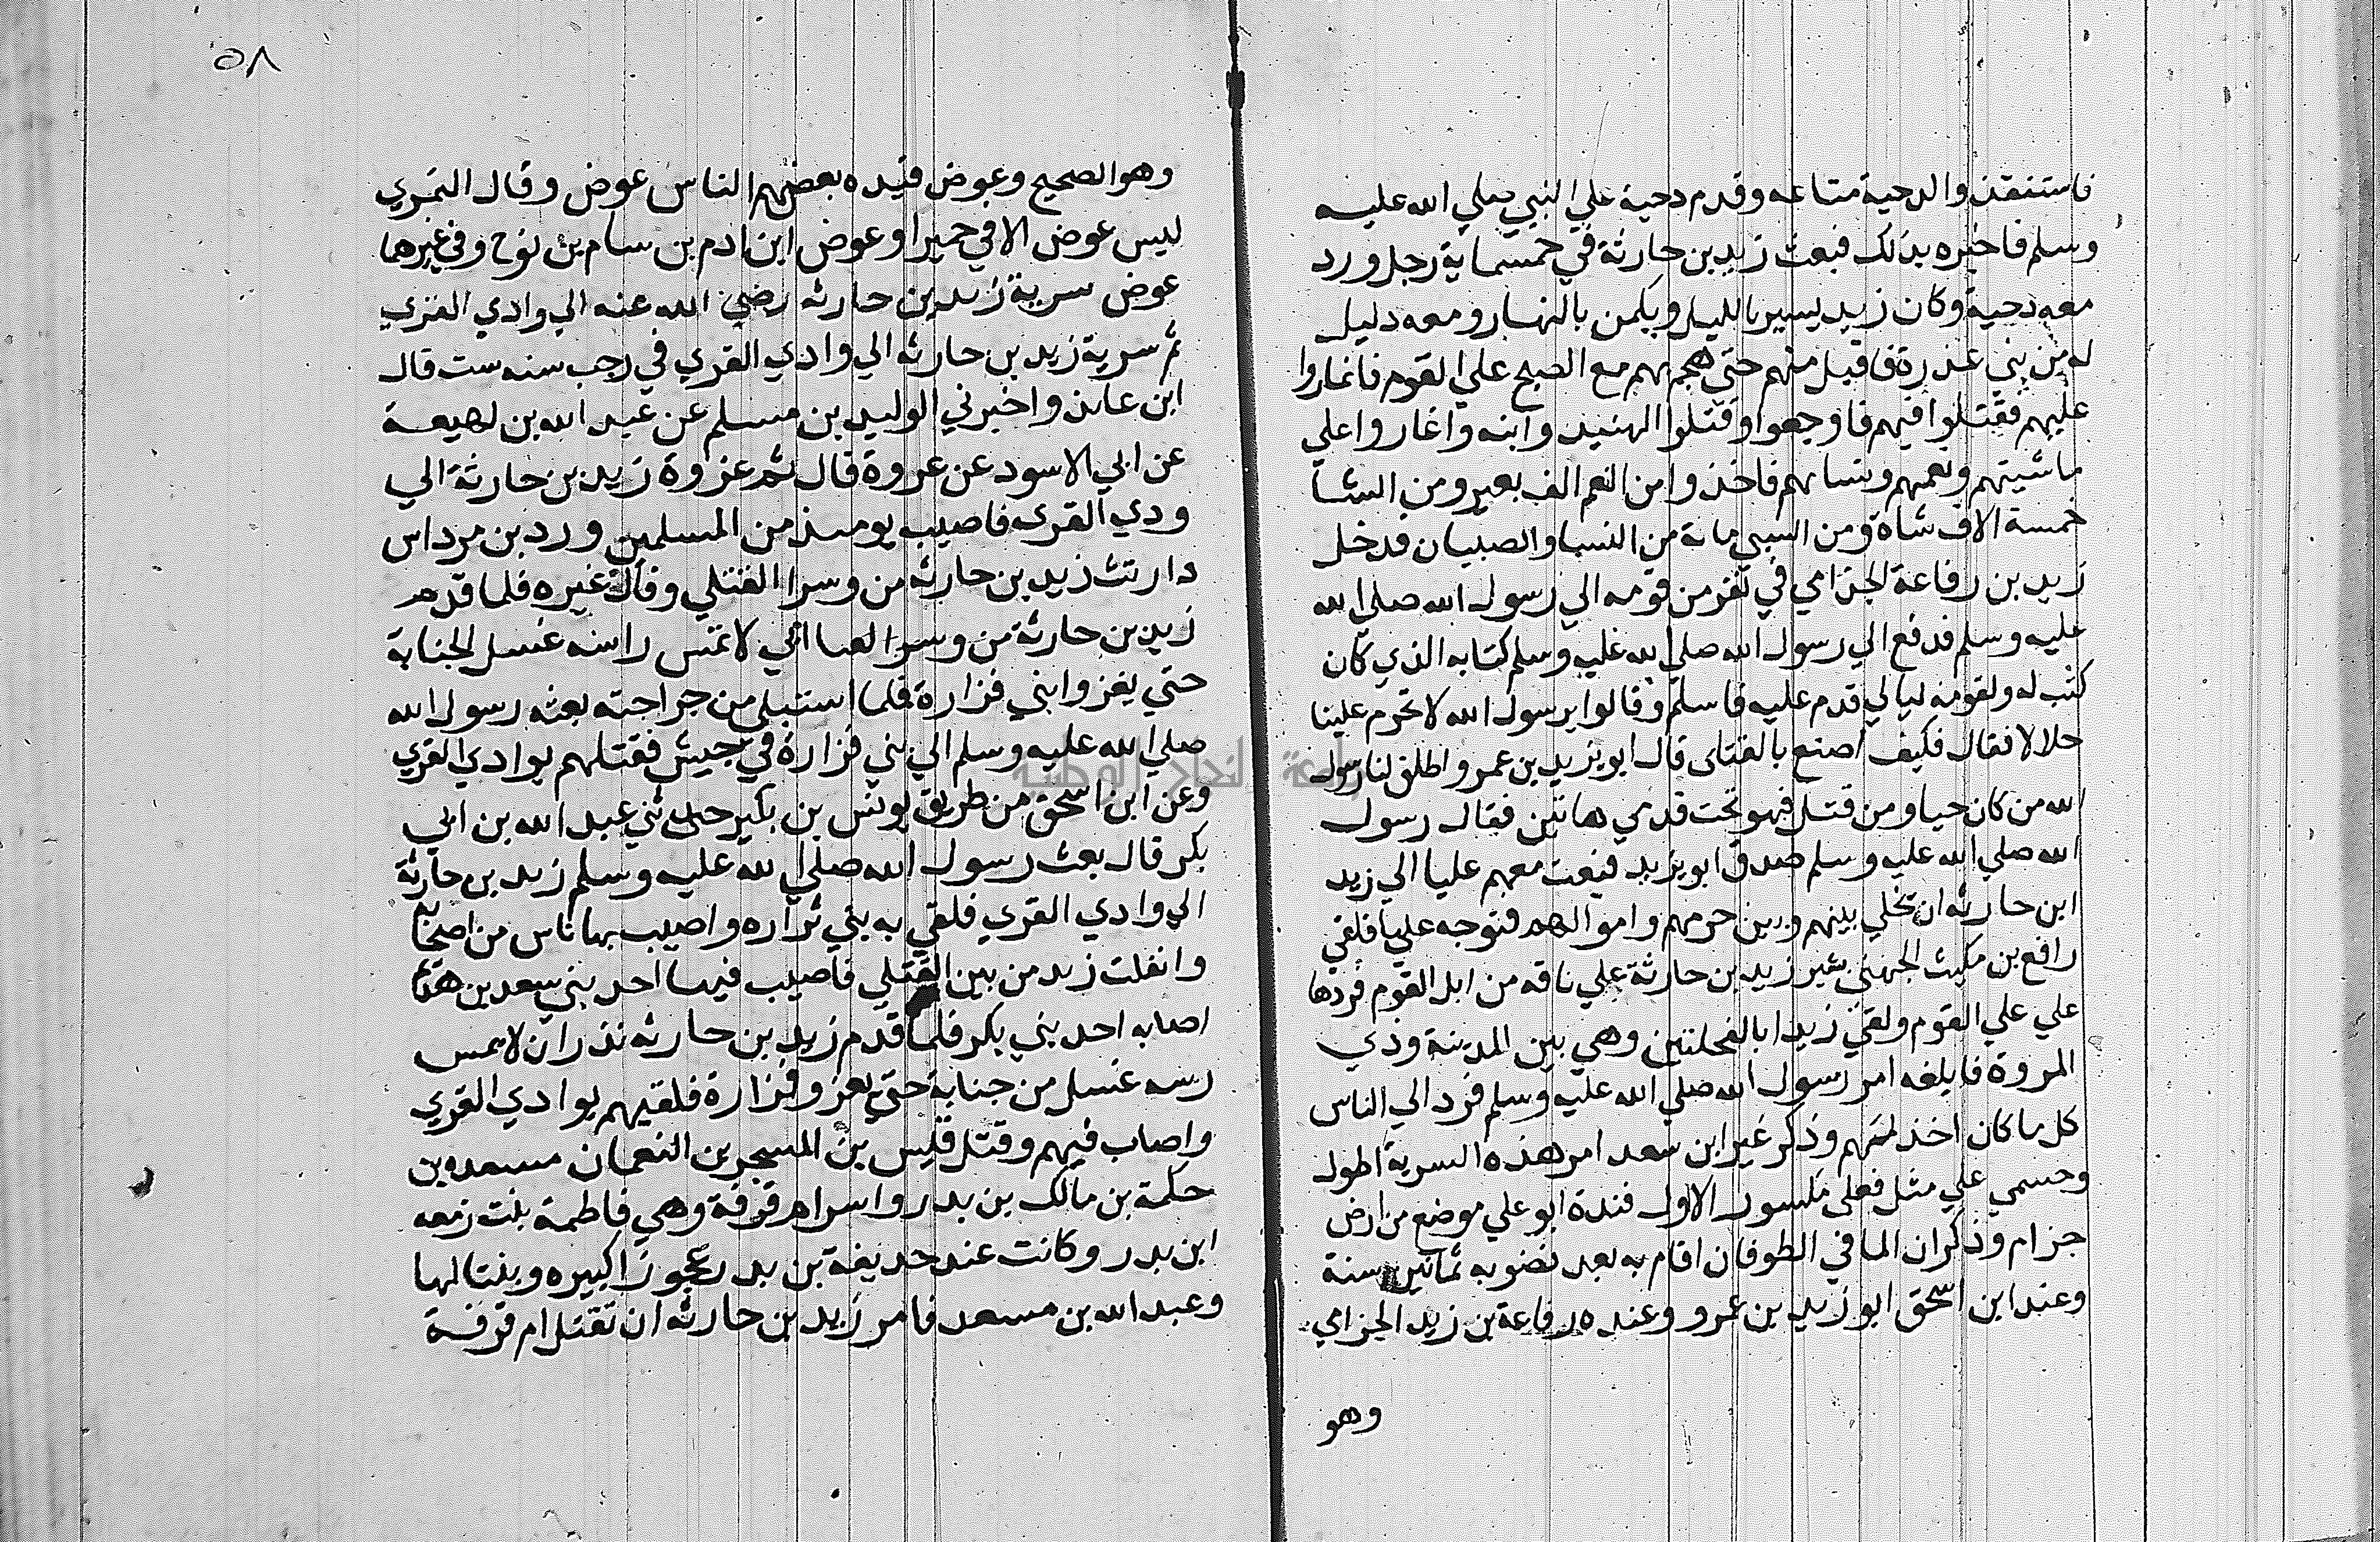 فاستنقذوا لدحية متاعه وقدم دحية علي النبي صلي الله عليه
وسلم فاخبره بذلك فبعث زيد بن حارثة في خمسماية رجل ورد
معه دحية وكان زيد يسير بالليل ويكمن بالنهار ومعه دليل
له من بني عذرة فاقبل منهم حتي هجم بهم مع الصبح علي القوم فاغاروا
عليهم فقتلوا فيهم فاوجعوا وقتلوا الهنيد وابنه واغاروا علي
ماشيتهم ونعمهم ونسابهم فاخذوا من النعم الف بعير ومن الشا
خمسة الاف شاة ومن السبي ماىة من النسا والصبيان فدخل
زيد بن رفاعة الجزامي في نفر من قومه الي رسول الله صلي الله
عليه وسلم فدفع الي رسول الله صلي الله عليه وسلم كتابه الذي كان
كتب له ولقومه ليالي قدم عليه فاسلم وقالوا يرسول الله لا تحرم علينا
حلالا فقال فكيف اصنع بالقتلى قال ابو يزيد بن عمرو اطلق لنا رسول
الله من كان حيا ومن قتل فهو تحت قدمي هاتين فقال رسول
الله صلي الله عليه وسلم صدق ابو يزيد فبعث معهم عليا الي زيد
ابن حارثه ان تخلي بينهم وبين حرمهم واموالهم فتوجه عليا فلقي
رافع بن مكيث الجهني بشير زيد بن حارثة علي ناقه من ابل القوم فردها
علي علي القوم ولقي زيدا بالفحلتين وهي بين المدينة وذي
المروة فابلغه امر رسول الله صلي الله عليه وسلم فرد الي الناس
كل ما كان اخذ لهم وذكر غير ابن سعد امر هذه السرية اطول
وحسمي علي مثل فعلى مكسور الاول قيده ابو علي موضع من ارض
جزام وذكر ان الما في الطوفان اقام به بعد نضوبه ثمانين سنة
وعند ابن اسحق ابو زيد بن عمرو وعنده رفاعة بن زيد الجزامي
وهو
٥٨
وهو الصحيح وعوض قيده بعضهم الناس عوض وقال النمري
ليس عوض الا في حمير او عوض ابن ادم بن سام بن نوح وفي غيرهما
عوض سرية زيد بن حارثه رضي الله عنه الي وادي القري
ثم سرية زيد بن حارثه الي وادي القري في رجب سنه ست قال
ابن عايذ واخبرني الوليد بن مسلم عن عبد الله بن لهيعة
عن ابي الاسود عن عروة قال ثم غزوة زيد بن حارثة الي
ودي القرى فاصيب يومئذ من المسلمين ورد بن مرداس
دارتث زيد بن حارثه من وسرا القتلي وقال غيره فلما قدم
زيد بن حارثة من وسرا العىا الي لا تمس راسه غسل الجنابة
حتي يغزوا بني فزارة فلما استبلي من جراحته بعثه رسول الله
صلي الله عليه وسلم الي بني فزارة في جيش فقتلهم بوادي القري
وعن ابن اسحق من طريق يونس بن بكير حدثني عبد الله بن ابي
بكر قال بعث رسول الله صلي الله عليه وسلم زيد بن حارثة
الي وادي القري فلقي به بني فزاره واصيب بها ناس من اصحابه
وانفلت زيد من بين القتلي فاصيب فيها احد بني سعد بن هذيم
اصابه احد بني بكر فلما قدم زيد بن حارثه نذر ان لا يمس
رسه غسل من جنابة حتي يغزو فزارة فلقيهم بوادي القري
واصاب فيهم وقتل قيس بن المسحر بن النعمان مسعده بن
حكمة بن مالك بن بدر واسر ام قرفة وهي فاطمة بنت زمعه
ابن بدر وكانت عند حذيفة بن بدر عجوزا كبيره وبنتا لها
وعبد الله بن مسعد فامر زيد بن حارثه ان تقتل ام قرفة
جامعة النجاح الوطنية